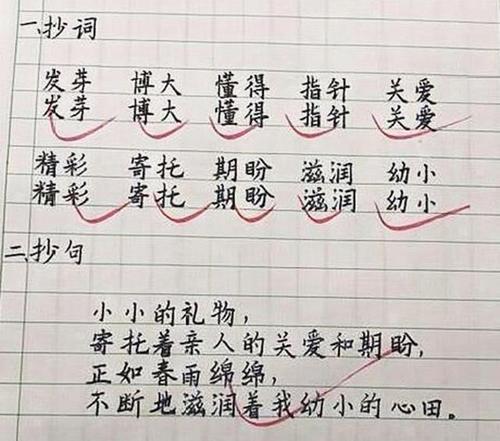 一.抄词
发芽 博大 懂得 指针 关爱
发芽 博大 懂得 指针 关爱
精彩 寄托 期盼 滋润 幼小
精彩 寄托 期盼 滋润 幼小
二.抄句
小小的礼物，
寄托着亲人的关爱和期盼，
正如春雨绵绵，
不断地滋润着我幼小的心田。